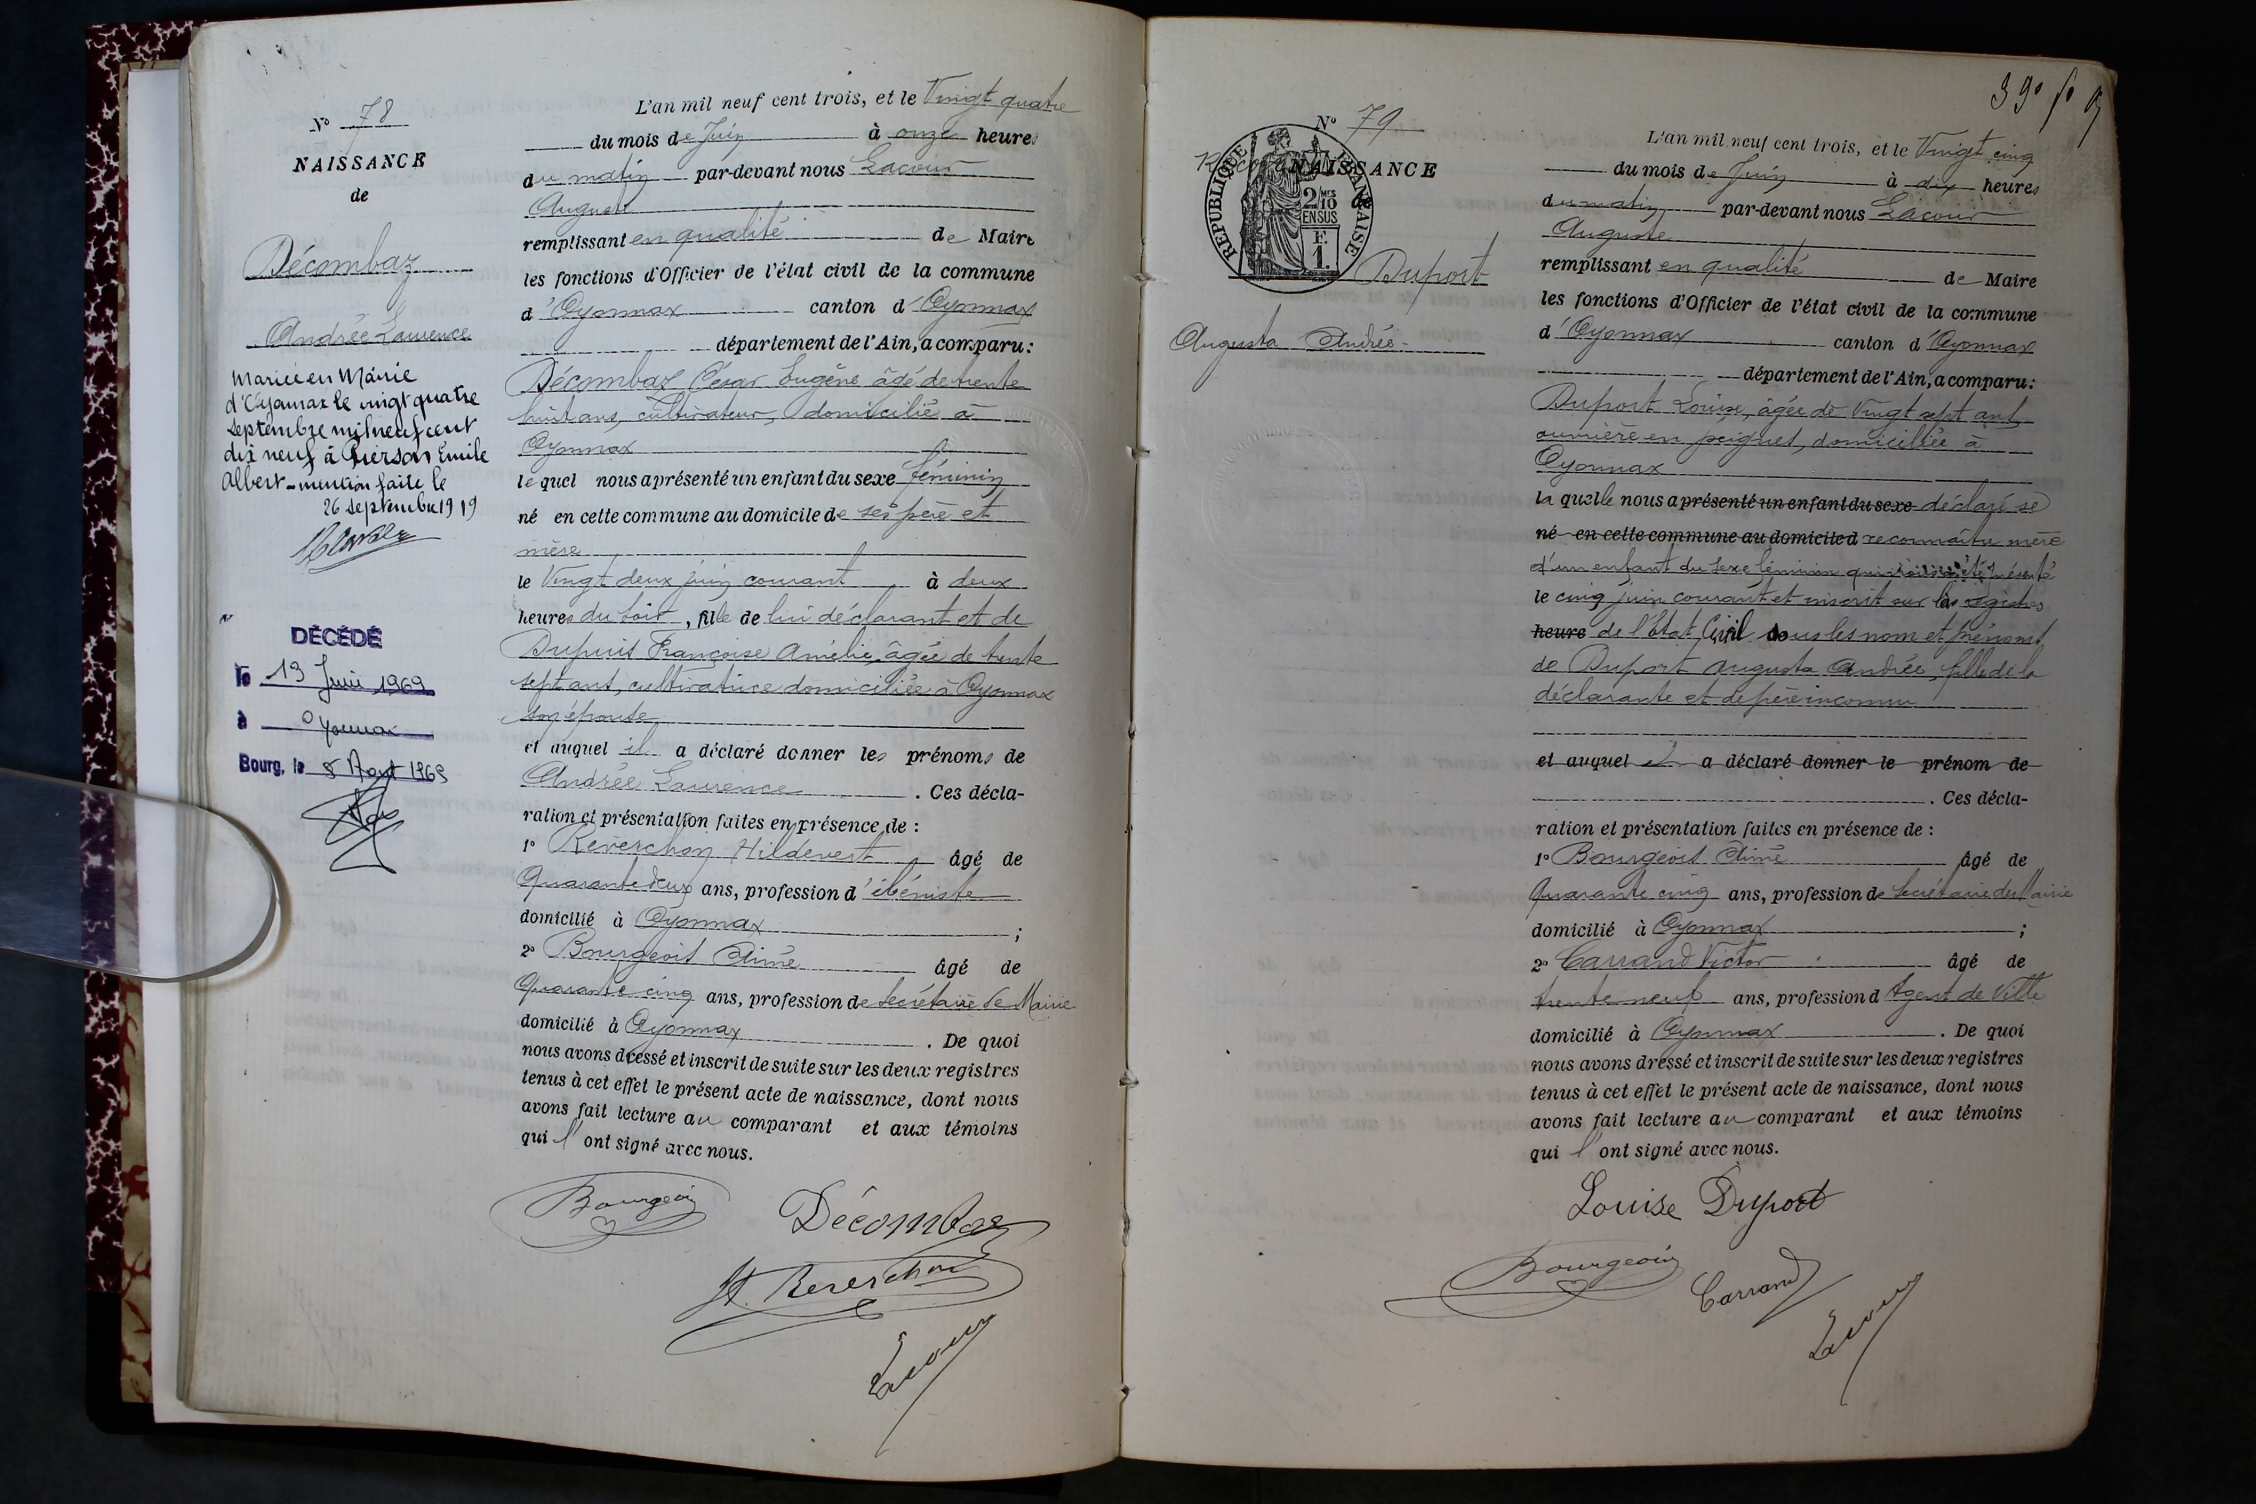 N° 78
NAISSANCE
de
Décombaz
Andrée Laurence
Mariée en Mairie
d'Oyonnax le vingt quatre
septembre mil neuf cent
dix neuf à Pierson Emile
Albert - mention faite le
26 septembre 1919
DÉCÉDÉ
le 13 Juin 1969
à Oyonnax
Bourg, le 8 Aout 1969
L'an mil neuf cent trois, et le Vingt quatre
du mois de Juin à onze heures
du matin par-devant nous Lacour
Auguste
remplissant en qualité de Maire
les fonctions d'Officier de l'état civil de la commune
d'Oyonnax canton d'Oyonnax
département de l'Ain, a comparu:
Décombaz César Eugène âgé de trente
huit ans, cultivateur, domicilié à
Oyonnax
le quel nous a présenté un enfant du sexe féminin
né en cette commune au domicile de ses père et
mère
le Vingt deux juin courant à deux
heures du soir, fille de lui déclarant et de
Dupuis Françoise Amélie, âgée de trente
sept ans, cultivatrice domiciliée à Oyonnax
son épouse
et auquel il a déclaré donner les prénoms de
Andrée Laurence. Ces décla-
ration et présentation faites en présence de:
1° Reverchon Hildevert âgé de
Quarante deux ans, profession d'ébéniste
domicilié à Oyonnax;
2° Bourgeois Aimé âgé de
Quarante cinq ans, profession de secrétaire de Mairie
domicilié à Oyonnax. De quoi
nous avons dressé et inscrit de suite sur les deux registres
tenus à cet effet le présent acte de naissance, dont nous
avons fait lecture au comparant et aux témoins
qui l'ont signé avec nous.
Bourgeois
Décombaz
H. Reverchon
Lacour
39e fo
N° 79
NAISSANCE
REPUBLIQUE FRANÇAISE
2/10 MES
EN SUS
F.
1.
Duport
Augusta Andrée
L'an mil neuf cent trois, et le Vingt cinq
du mois de Juin à dix heures
du matin par-devant nous Lacour
Auguste
remplissant en qualité de Maire
les fonctions d'Officier de l'état civil de la commune
d'Oyonnax canton d'Oyonnax
département de l'Ain, a comparu:
Duport Louise, âgée de Vingt sept ans,
ouvrière en peignes, domiciliée à
Oyonnax
la quelle nous a présenté un enfant du sexe déclaré se
né en cette commune au domicile d reconnaître mère
d'un enfant du sexe féminin qui nous a été présenté
le cinq juin courant et inscrit sur les registres
heure de l'Etat Civil sous les nom et prénoms
de Duport Augusta Andrée, fille de la
déclarante et de père inconnu
et auquel il a déclaré donner le prénom de
. Ces décla-
ration et présentation faites en présence de:
1° Bourgeois Aimé âgé de
Quarante cinq ans, profession de secrétaire de Mairie
domicilié à Oyonnax;
2° Carrand Victor âgé de
trente neuf ans, profession d Agent de Ville
domicilié à Oyonnax. De quoi
nous avons dressé et inscrit de suite sur les deux registres
tenus à cet effet le présent acte de naissance, dont nous
avons fait lecture au comparant et aux témoins
qui l'ont signé avec nous.
Louise Duport
Bourgeois
Carrand
Lacour